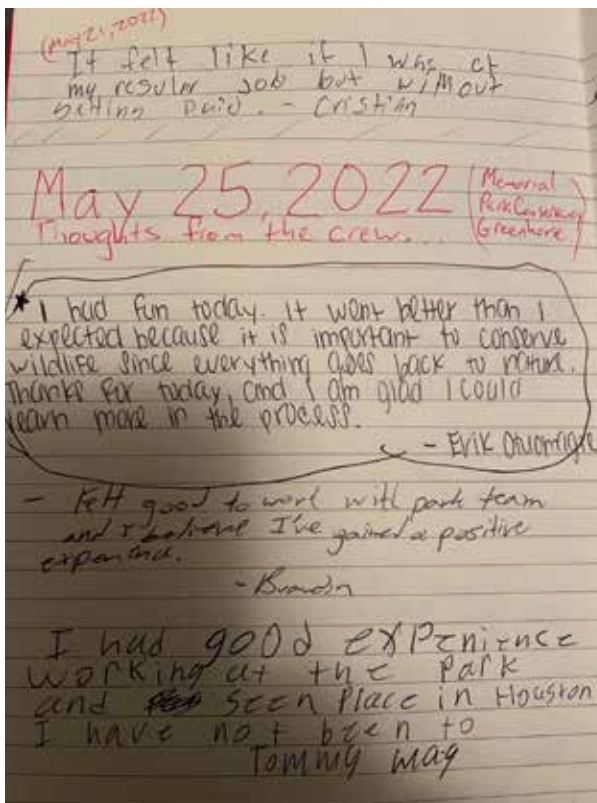 (May 21, 2022)
It felt like if I was at
my regular job but without
getting paid. - Cristian
May 25, 2022
(Memorial
Park Conservancy
Greenhouse)
Thoughts from the crew...
* I had fun today. It went better than I
expected because it is important to conserve
wildlife since everything goes back to nature.
Thanks for today, and I am glad I could
learn more in the process.
- Erik
- Felt good to work with park team
and I believe I've gained a positive
experience.
- Brandon
I had good experience
working at the Park
and seen Place in Houston
I have not been to
Tommy